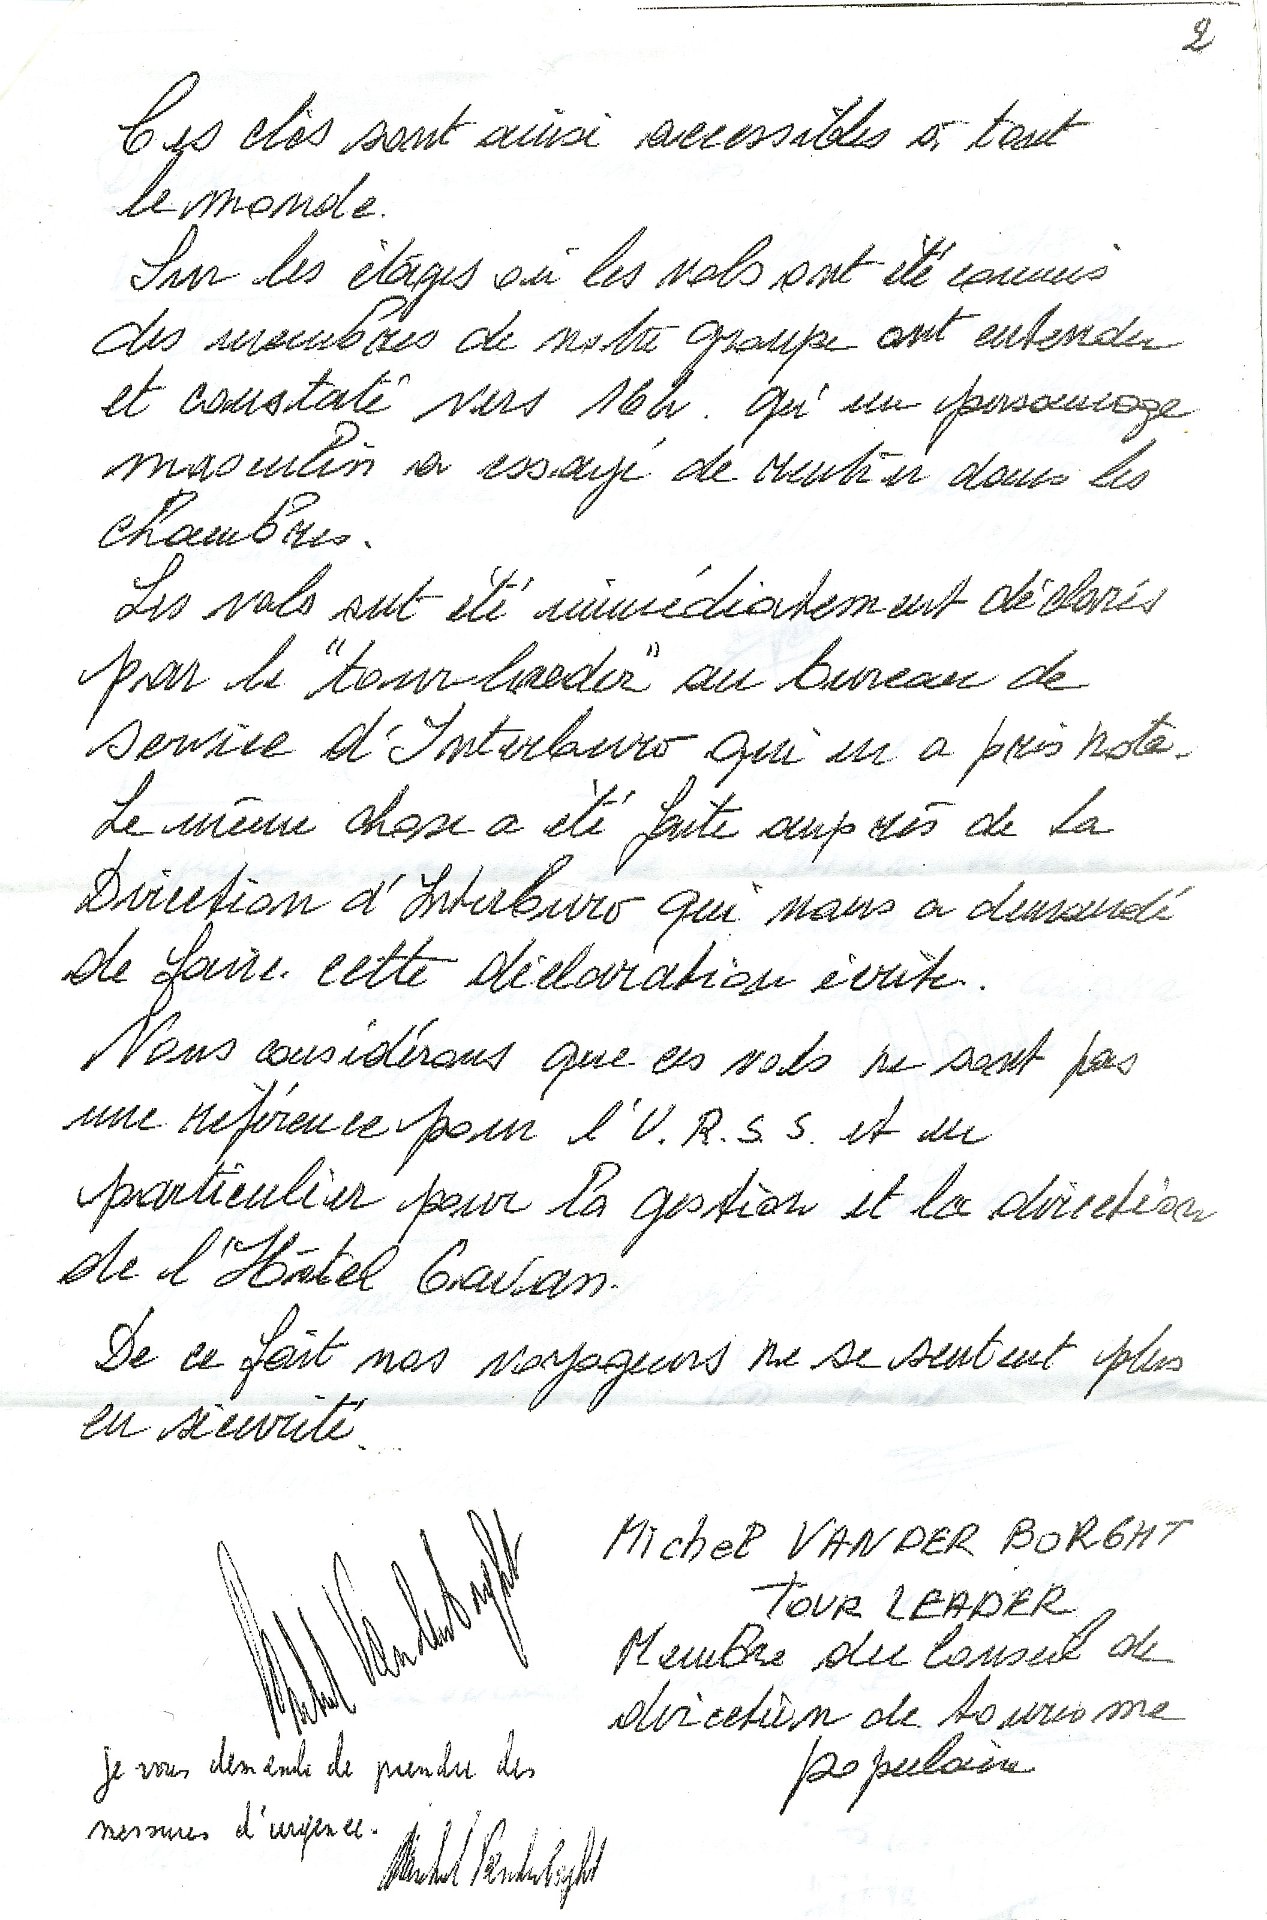 2
Ces clés sont ainsi accessibles à tout
le monde.
Sur les étages où les vols ont été commis
des membres de notre groupe ont entendu
et constaté vers 16h. qu'un personnage
masculin a essayé de rentrer dans les
chambres.
Les vols ont été immédiatement déclarés
par le "tour leader" au bureau de
service d'Interburo qui en a pris note.
Le même chose a été faite auprès de la
Direction d'Interburo qui nous a demandé
de faire cette déclaration écrite.
Nous considérons que ces vols ne sont pas
une référence pour l'U.R.S.S. et en
particulier pour la gestion et la direction
de l'Hôtel
De ce fait nos voyageurs ne se sentent plus
en sécurité.
Michel VANDER BORGHT
TOUR LEADER
Membre du Conseil de
direction de tourisme
populaire
Michel Vanderborght
je vous demande de prendre des
mesures d'urgence.
Michel Vanderborght